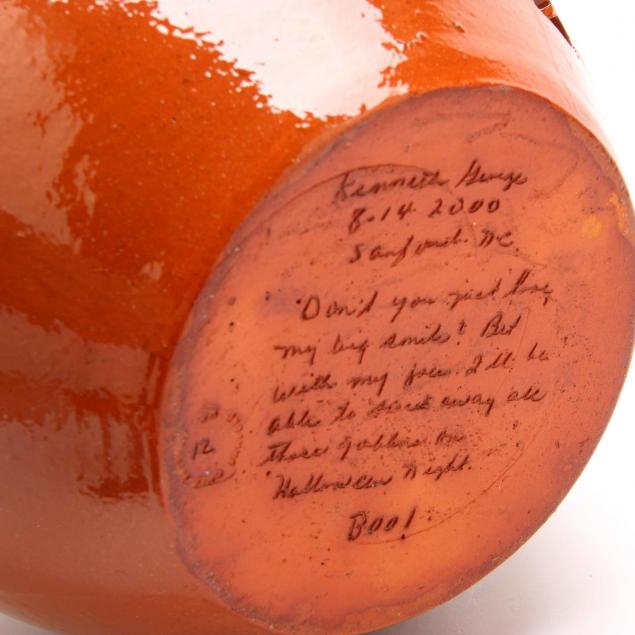 Kenneth George
8-14 2000
Sanford NC.
Don't you just love
my big smile? Bet
with my face I'll be
able to scare away all
those goblins on
Halloween Night.
Boo!